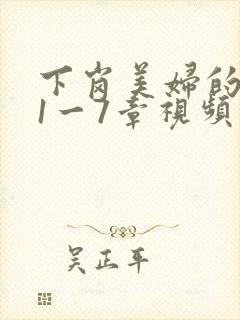 下岗美婦的
1一7章視頻
吴正平